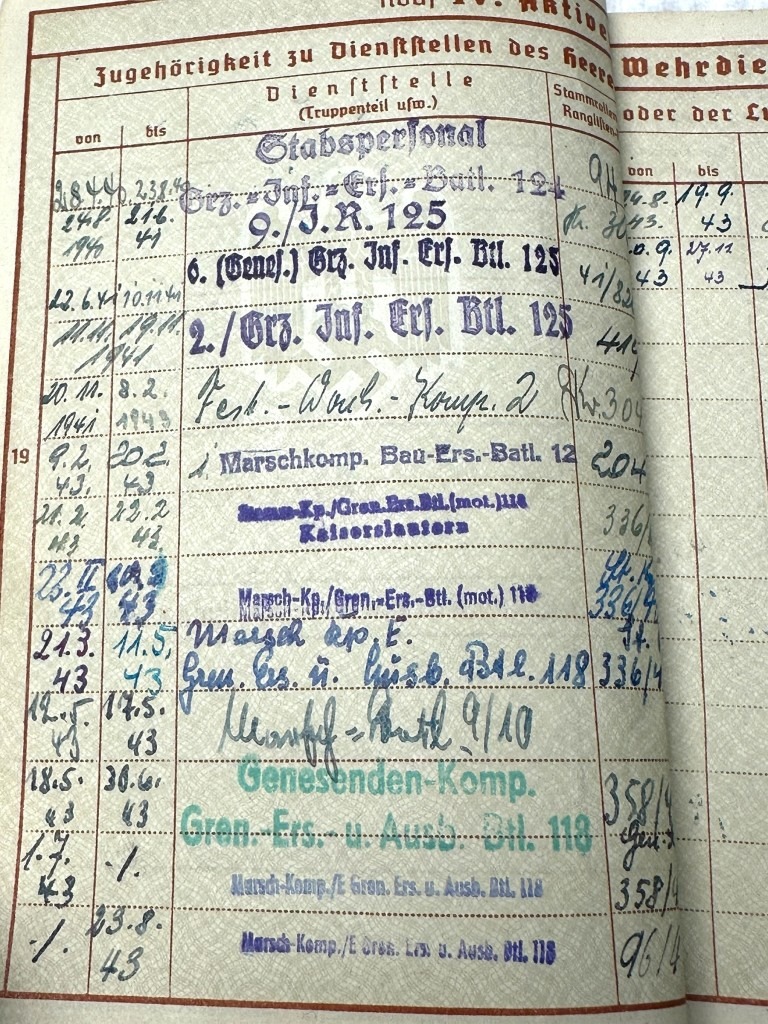 IV. Aktive
Zugehörigkeit zu Dienststellen des Heere
Dienststelle
(Truppenteil usw.)
von bis
Stammrollen
Ranglisten-
Stabspersonal
28.4.40 23.8.40 Grz.=Inf.=Ers.=Batl. 124
24.8. 21.6. 9./J.R. 125
1940 41
6. (Genes.) Grz. Inf. Ers. Btl. 125
22.6.41 10.11.41 41/82
11.11. 19.11. 2./Grz. Inf. Ers. Btl. 125
1941 414
20.11. 8.2. Fest.-Wach.-Komp. 2 304
1941 1943
19 9.2. 20.2. 1. Marschkomp. Bau-Ers.-Batl. 12 204
43. 43
21.2. 22.2 Stamm-Kp./Gren.Ers.Btl.(mot.)118 336/
43 43 Kaiserslautern
43 43. Marsch-Kp./Gren.-Ers.-Btl. (mot.) 118 336/4
21.3. 11.5. Marsch Kp. E.
43 43 Gren. Ers. u. Ausb. Btl. 118 336/4
12.5. 17.5. Marsch=Batl. 9/10
43 43
18.5. 30.6. Genesenden-Komp. 358/4
43 43 Gren.-Ers.- u. Ausb. Btl. 118
1.7. -/. Marsch-Komp./E Gren. Ers. u. Ausb. Btl. 118 358/4
43
-/. 23.8. Marsch-Komp./E Gren. Ers. u. Ausb. Btl. 118 96/4
43
Wehrdie
oder der Lu
von bis
24.8. 19.9.
43. 43
27.11
43 43